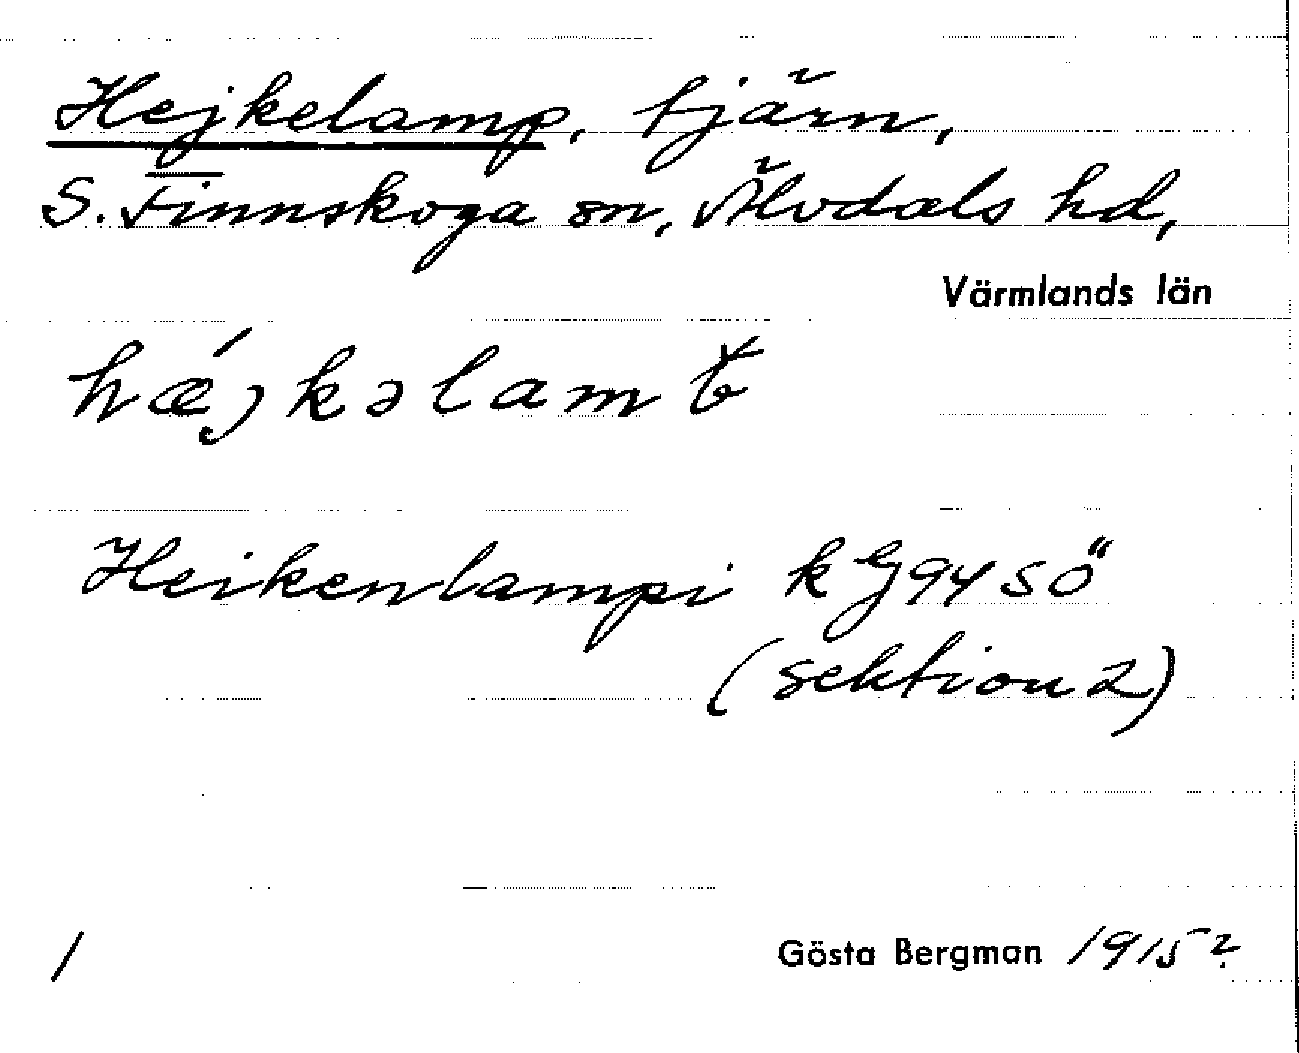 Hejkelamp, tjärn,
S. Finnskoga sn, Älvdals hd,
Värmlands län
Heikenlampi k G 94 SÖ
(sektion 2)
1 Gösta Bergman 1915?